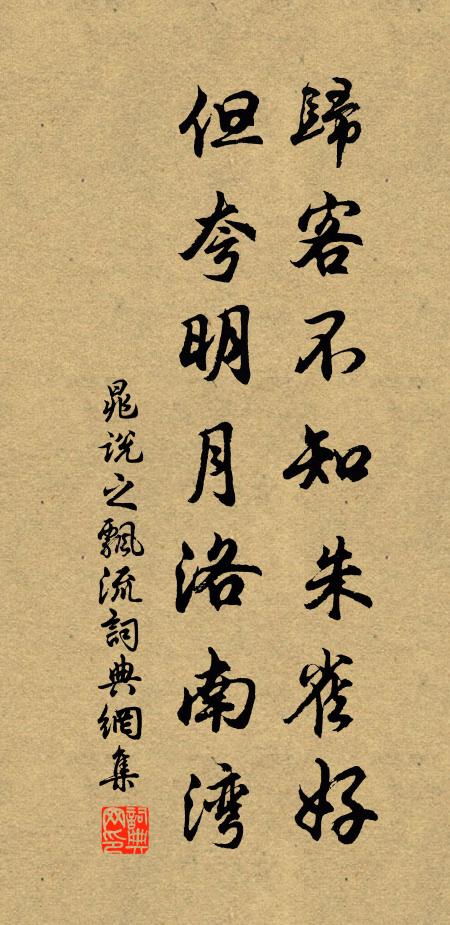 歸客不知朱雀好
但夸明月洛南湾
晁说之飄流詞典網集
詞典网印